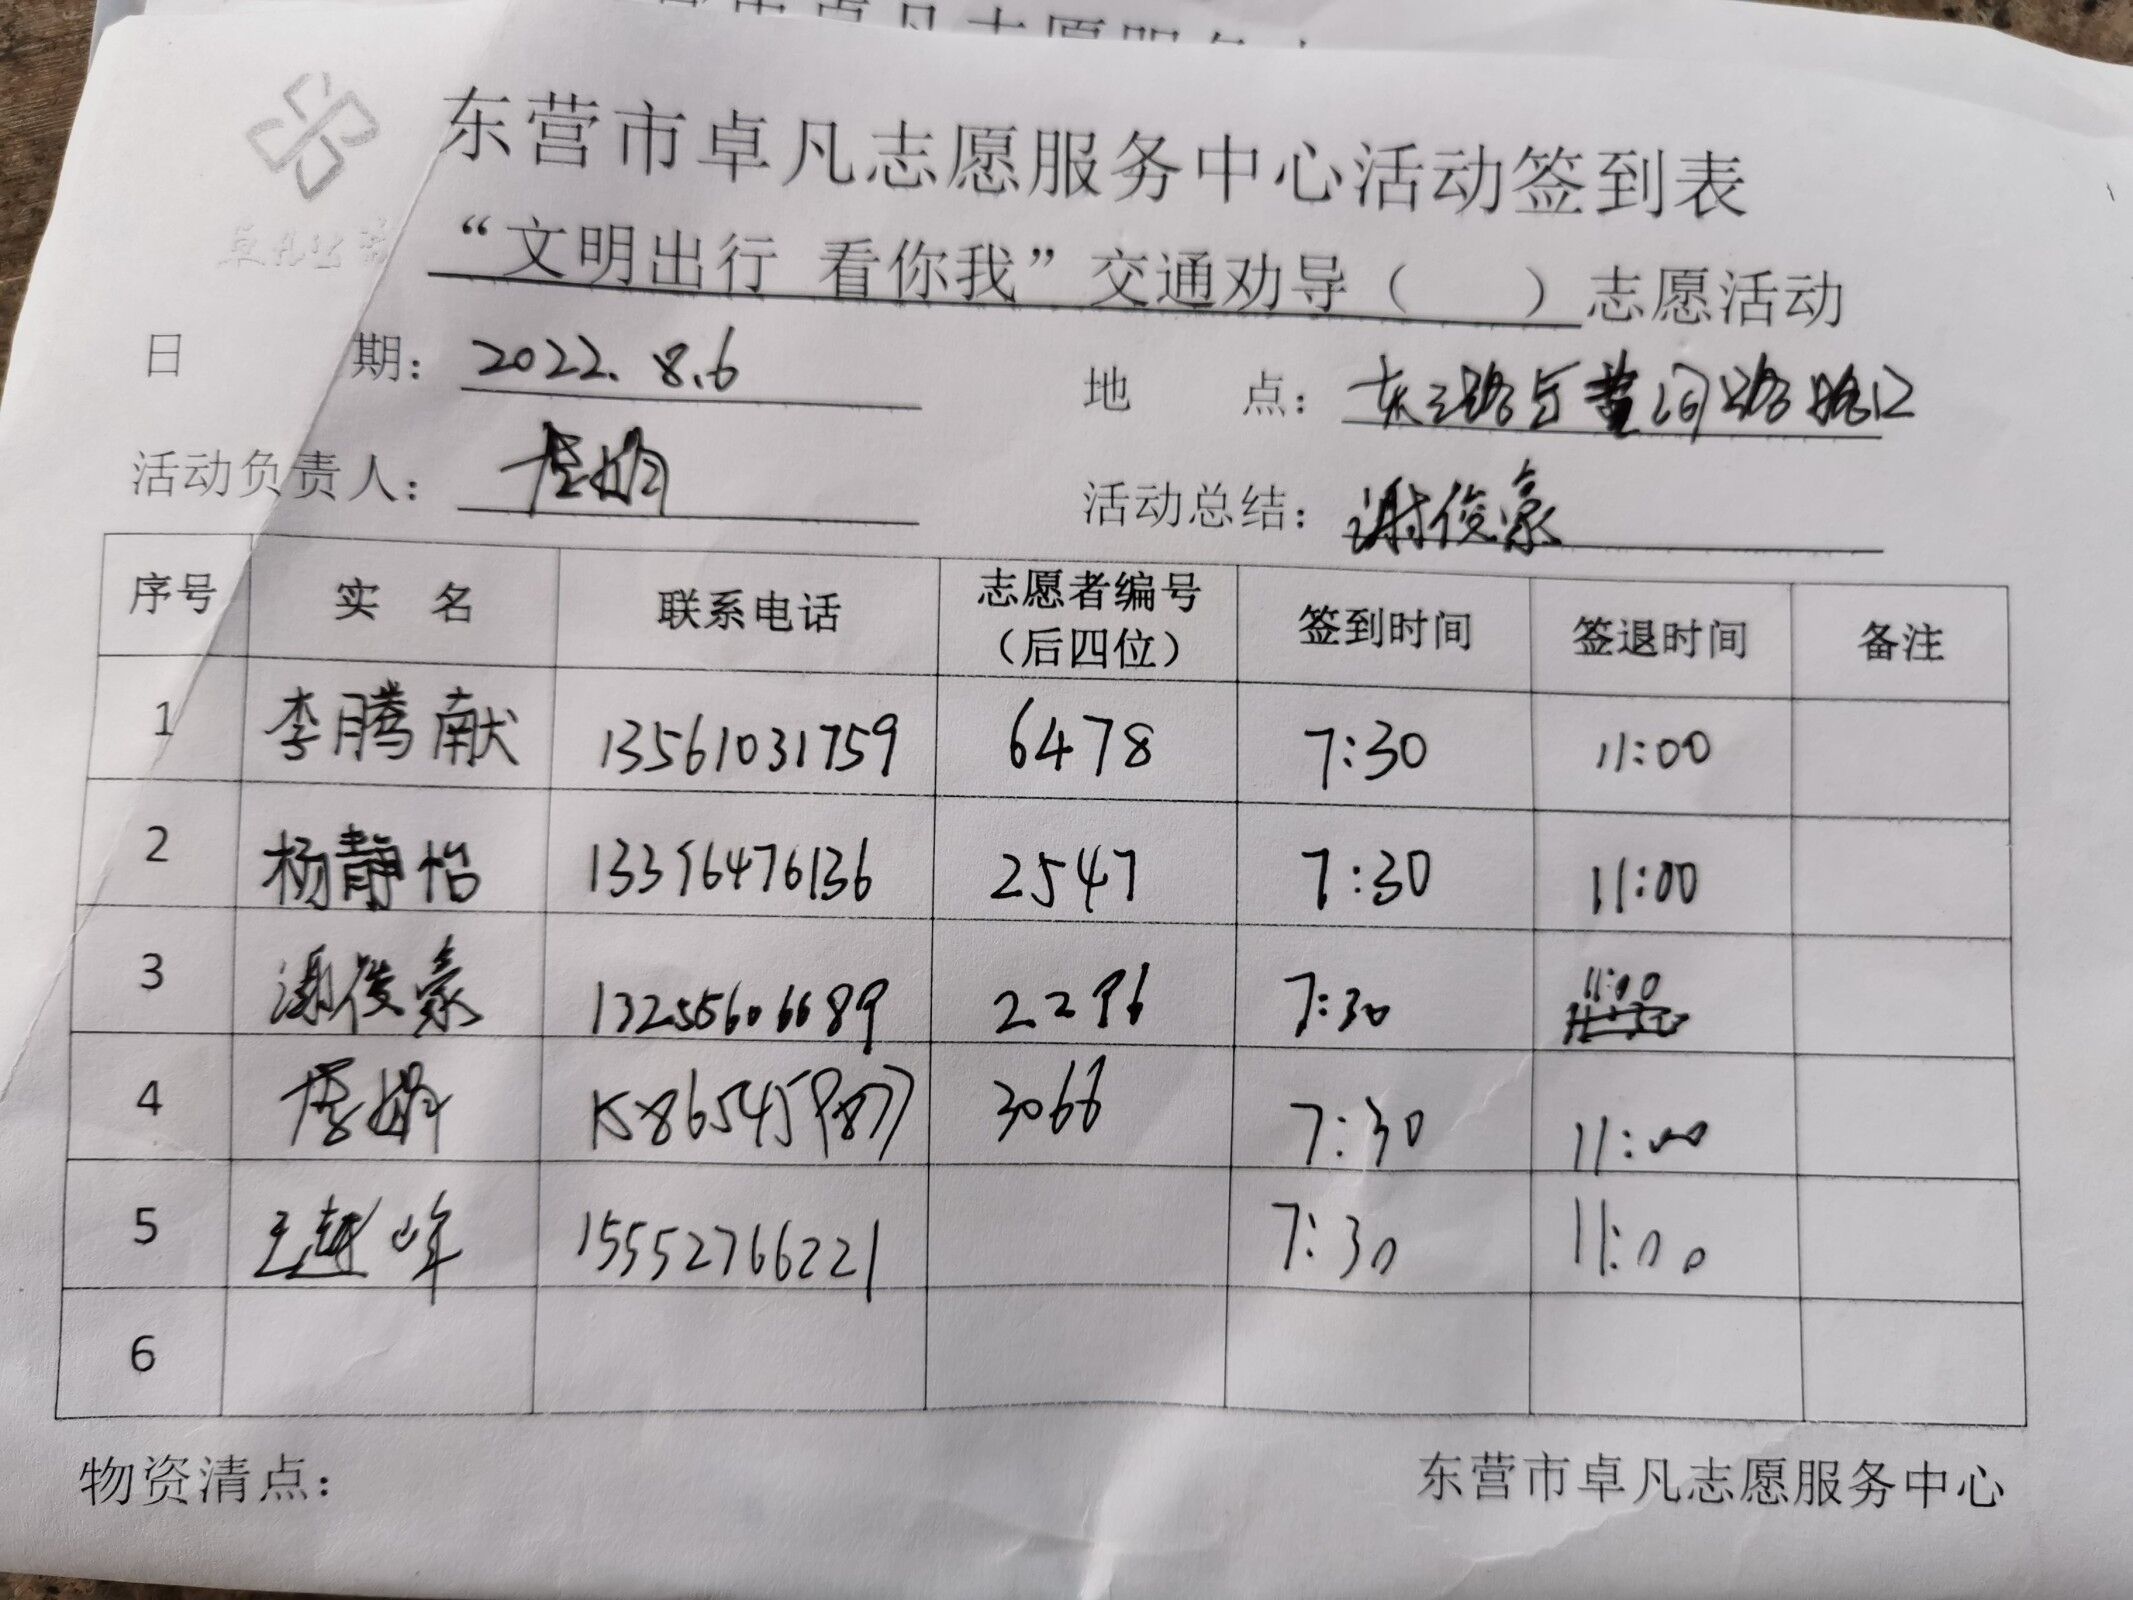 东营市卓凡志愿服务中心活动签到表
“文明出行 看你我”交通劝导（ ）志愿活动
日 期： 2022.8.6 地 点： 东三路与黄河路路口
活动负责人： 唐娟 活动总结： 谢俊豪
序号 实 名 联系电话 志愿者编号（后四位） 签到时间 签退时间 备注
1 李腾献 13561031759 6478 7:30 11:00
2 杨静怡 13396476136 2547 7:30 11:00
3 谢俊豪 13255606689 2296 7:30 11:00
4 唐娟 3066 7:30 11:00
5 王越峰 15552766221 7:30 11:00
6
物资清点： 东营市卓凡志愿服务中心